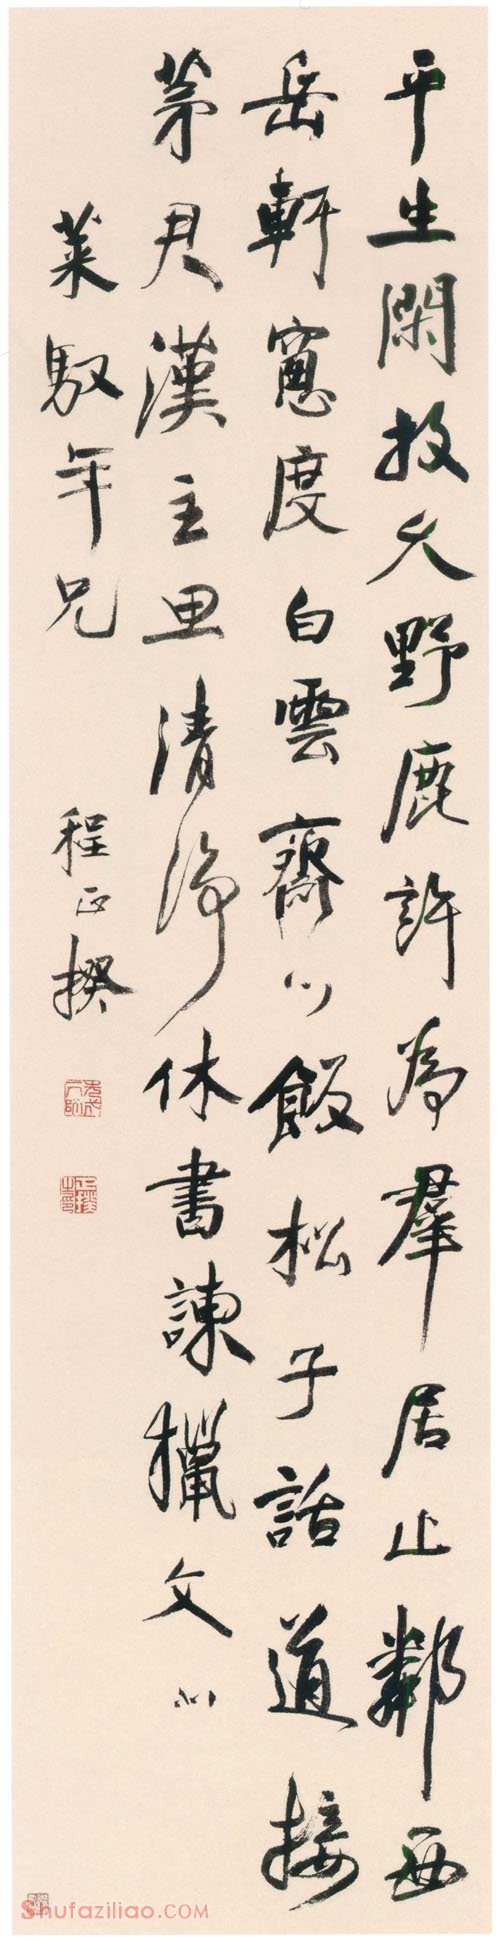 平生閑放久野鹿許為羣居止鄰西
岳軒窻度白雲齋心飯松子話道接
茅君漢主思清淨休書諫獵文
萊馭年兄
程正揆
Shufaziliao.COM